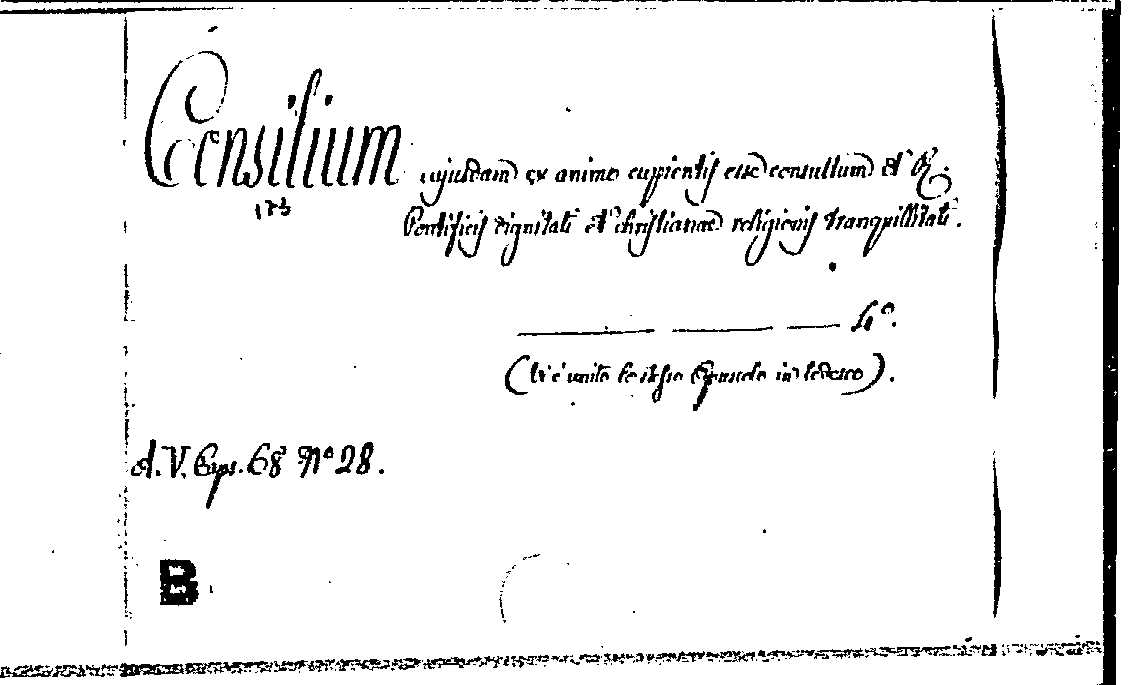 Consilium cujusdam ex animo cupientis esse consultum et R.
173
Pontificis dignitati et christianae religionis tranquillitati.
4º.
(Vi è unito lo stesso Opuscolo in tedesco).
A. V. Ops. 68 Nº 28.
B